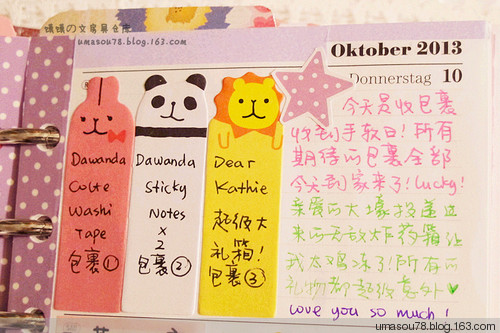 蠕蠕の文房具仓库
umasou78.blog.163.com
Oktober 2013
Donnerstag 10
Dawanda
Cute
Washi
Tape
包裹①
Dawanda
Sticky
Notes
x
2
包裹②
Dear
Kathie
超级大
礼箱!
包裹③
今天是收包裹
收到手软日!所有
期待的包裹全部
今天到家来了!Lucky!
亲爱的大壕投递过
来的无敌炸药箱让
我太鸡冻了!所有的
礼物都超级意外♥
love you so much!
umasou78.blog.163.com